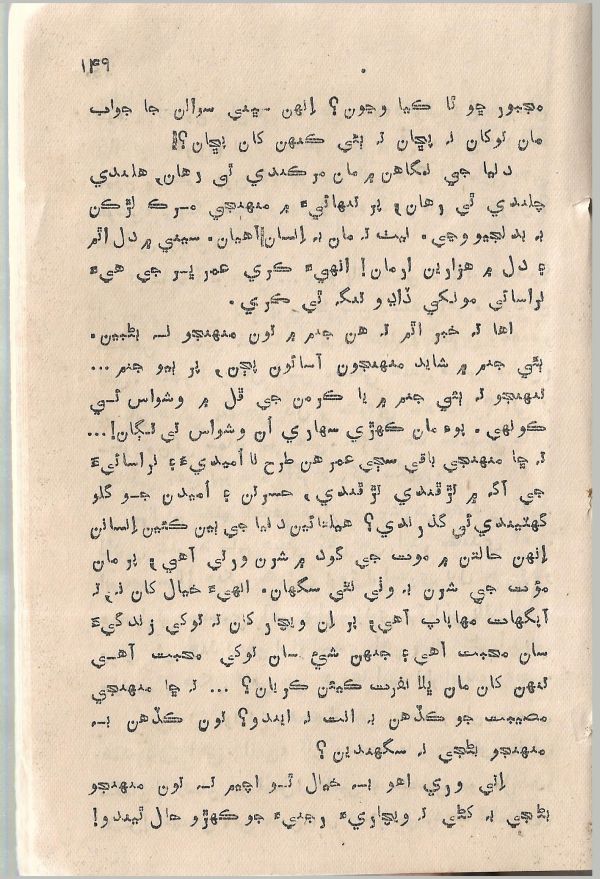 ۱۴۹
مجبور ڇو ٿا ڪيا وڃون؟ انهن سڀني سوالن جا جواب
مان توکان نه پڇان ته ٻئي ڪنهن کان پڇان؟
دنيا جي نگاهن ۾ مان مرڪندي ٿي رهان، هلندي
چلندي ٿي رهان، پر تنهائيءَ ۾ منهنجي مرڪ لڙڪن
۾ بدلجيو وڃي. ليٺ ته مان به انسان آهيان. سيني ۾ دل اٿم
۽ دل ۾ هزارين ارمان! انهيءَ ڪري عمر ڀر جي هيءَ
نراسائي مونکي ڏاڍو تنگ ٿي ڪري.
اها ته خبر اٿم ته هن جنم ۾ تون منهنجو نه بڻبين.
ٻئي جنم ۾ شايد منهنجون آسائون پڄن، پر ٻيو جنم ...
تنهنجو ته ٻئي جنم ۾ يا ڪرمن جي ڦل ۾ وشواس ئي
ڪونهي. پوءِ مان ڪهڙي سهاري اُن وشواس تي ٽڪان!...
ته ڇا منهنجي باقي سڄي عمر هن طرح نا اُميديءَ ۽ نراسائيءَ
جي آگ ۾ تڙڦندي تڙڦندي، حسرتن ۽ اُميدن جو گلو
گهٽيندي ئي گذرندي؟ هيلتائين دنيا جي ٻين ڪيئن انسانن
انهن حالتن ۾ موت جي گود ۾ شرن ورتي آهي، پر مان
مؤت جي شرن به وٺي نٿي سگهان. انهيءَ خيال کان نه، ته
آپگهات مهاپاپ آهي، پر اِن ويچار کان ته توکي زندگيءَ
سان محبت آهي ۽ جنهن شيءِ سان توکي محبت آهي
تنهن کان مان ڀلا نفرت ڪيئن ڪريان؟ ... ته ڇا منهنجي
مصيبت جو ڪڏهن به انت نه ايندو؟ تون ڪڏهن به
منهنجو بڻجي نه سگهندين؟
اِتي وري اهو به خيال ٿو اچيم ته تون منهنجو
بڻجي به کڻي ته ويچاريءَ رجنيءَ جو ڪهڙو حال ٿيندو!